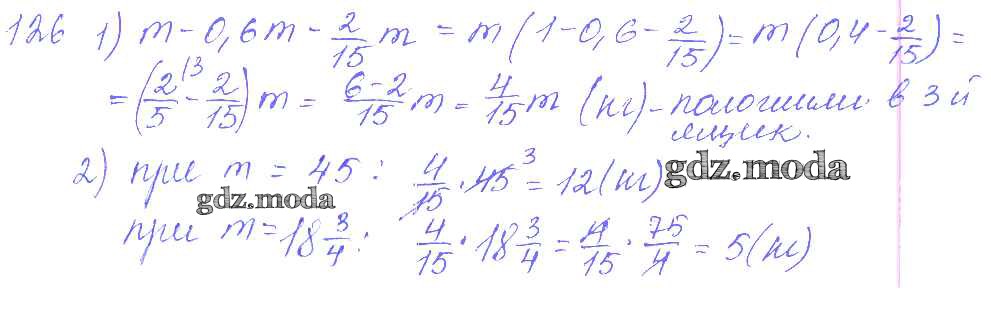 126 1) m - 0,6m - 2/15 m = m (1 - 0,6 - 2/15) = m (0,4 - 2/15) =
= (2/5 ⁽³ - 2/15) m = (6-2)/15 m = 4/15 m (кг) - положили в 3й
ящик.
2) при m = 45 : 4/15 · 45 ³ = 12 (кг)
gdz.moda
gdz.moda
при m = 18 3/4 : 4/15 · 18 3/4 = 4/15 · 75/4 = 5 (кг)